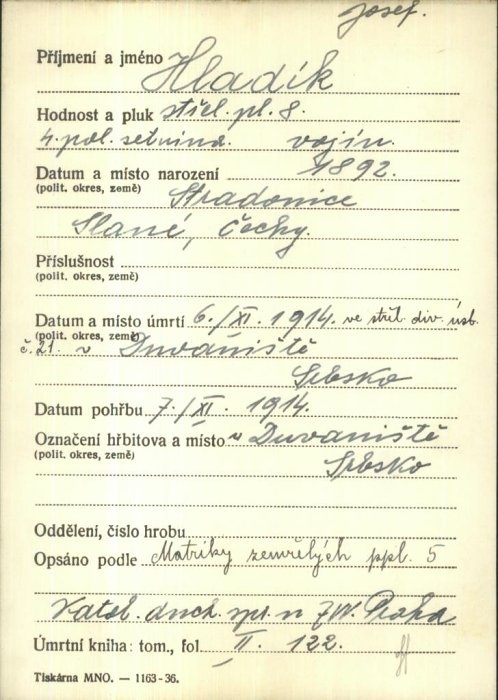 Josef.
Příjmení a jméno Hladík
Hodnost a pluk střel. pl. 8.
4. pol. setnina. vojín.
Datum a místo narození 1892.
(polit. okres, země) Stradonice
Slané, Čechy.
Příslušnost
(polit. okres, země)
Datum a místo úmrtí 6./XI. 1914. ve střel. div. úsb.
(polit. okres, země)
č. 21. v Duvaniště
Srbsko
Datum pohřbu 7./XI. 1914.
Označení hřbitova a místo v Duvaniště
(polit. okres, země) Srbsko
Oddělení, číslo hrobu
Opsáno podle Matriky zemřelých ppl. 5
Katol. duch. spr. n ZV. Praha
Úmrtní kniha: tom., fol. II. 122.
Tiskárna MNO. — 1163-36.